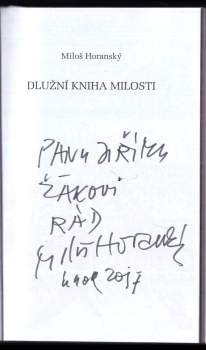 Miloš Horanský
DLUŽNÍ KNIHA MILOSTI
PANU JIŘÍMU
ŽÁKOVI
RÁD
Miloš Horanský
2017